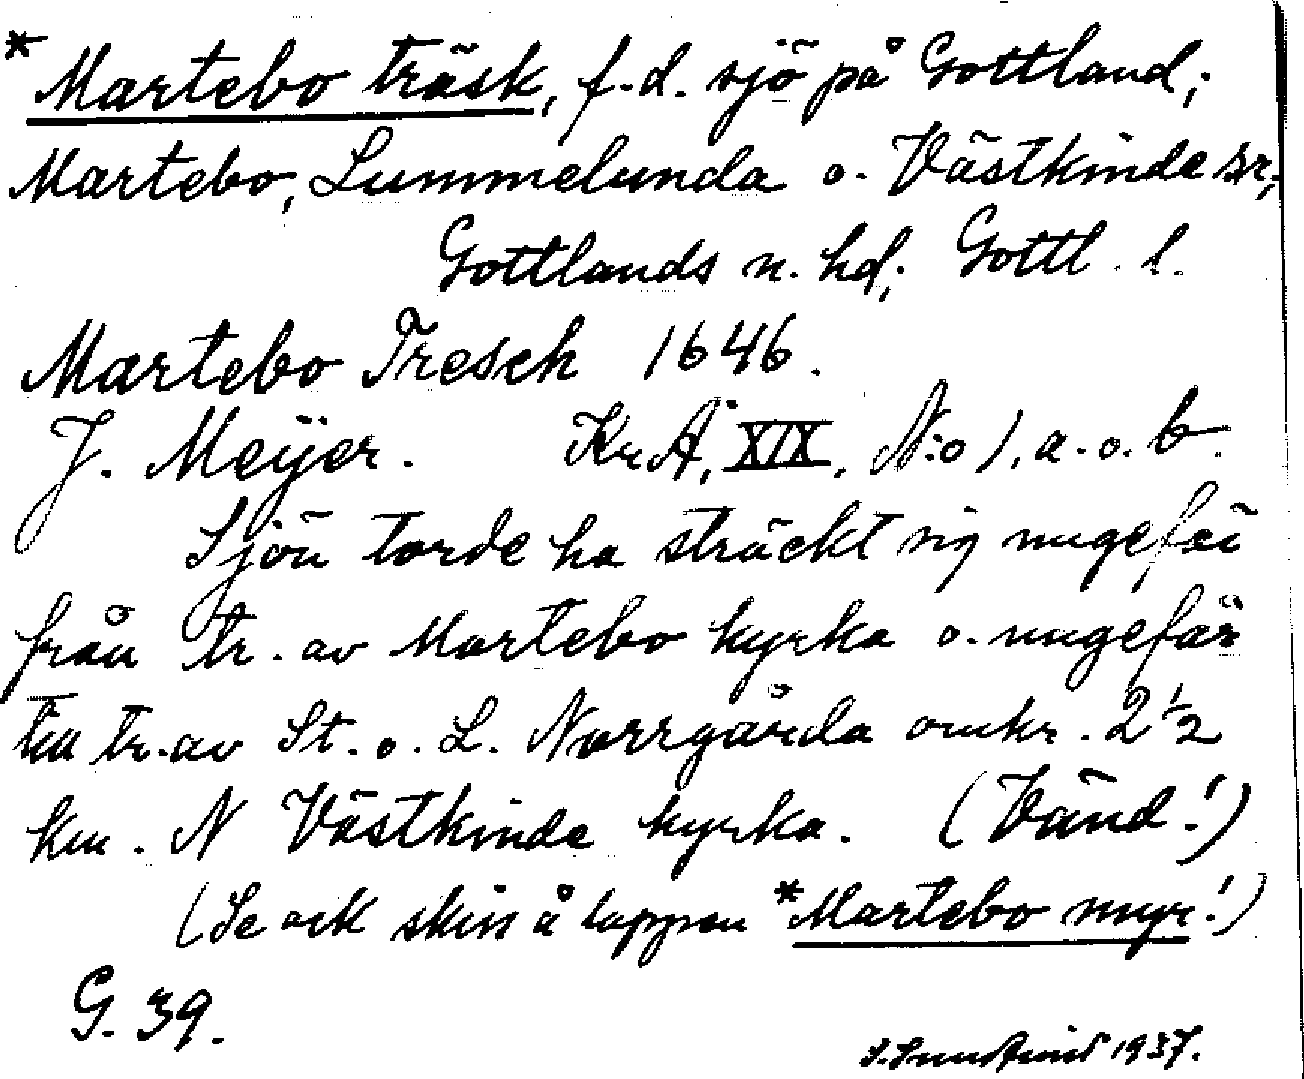 * Martebo träsk, f.d. sjö på Gottland;
Martebo, Lummelunda o. Västkinde sr,
Gottlands n. hd; Gottl. l.
Martebo Tresch 1646.
J. Meÿer. KrA, XIX, N:o 1, a. o. b.
Sjön torde ha sträckt sig ungefär
från tr. av Martebo kyrka o. ungefär
till tr. av St. o. L. Norrgårda omkr. 2 1/2
km. N Västkinde kyrka. (Vänd!)
(Se ock skiss å lappen *Martebo myr!)
G. 39.
1937.